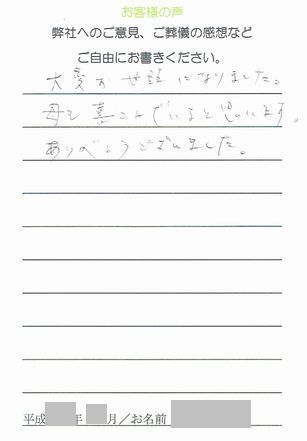 お客様の声
弊社へのご意見、ご葬儀の感想など
ご自由にお書きください。
大変お世話になりました。
母も喜こんでいると思います。
ありがとうございました。
平成 年 月/お名前